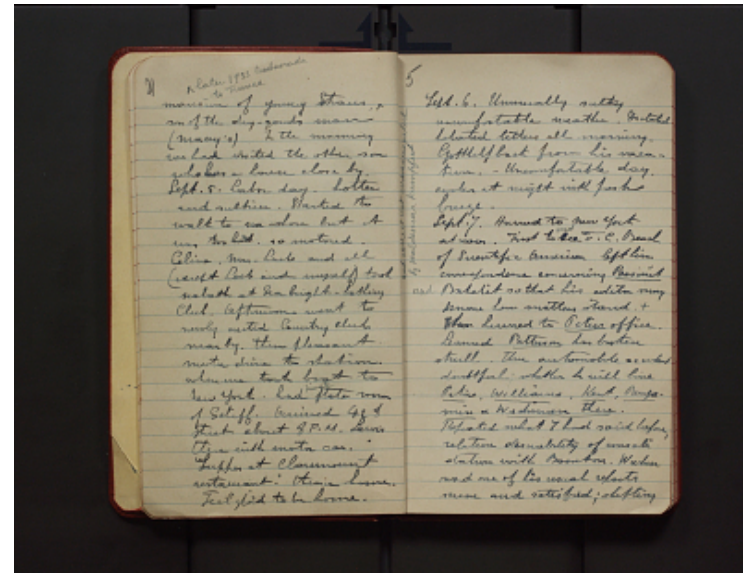 A later 1931 Ambassade
to France
mansion of young Straus, a
son of the dry-goods man
(Macy's) In the morning
we had visited the other son
who has a house close by.
Sept. 5. Labor day. Hotter
and sultrier. Started to
walk to seashore but it
was too hot. so motored.
Celine, Mrs. Loeb and all
(except Loeb and myself) took
bath at Seabright Bathing
Club. Afternoon went to
newly Country Club
nearby. then pleasant
motor drive to station
where we took boat to
New York. Had State room
of Seliff. Arrived 42d
Street about 9 P.M. Lewis
there with motor car.
Supper at Claremount
restaurant. Then home.
Feel glad to be home.
5
Sept. 6. Unusually sultry
uncomfortable weather. Dictated
letters all morning.
Gottlieb back from his vaca-
tion. - Uncomfortable day.
cooler at night with fresh
breeze.
Sept. 7. Hurried to New York
at noon. First to see F. C. Beach
of Scientific American left him
correspondence concerning
and Bakelit so that his editor may
know how matters stand +
then hurried to office.
Pattison has broken
skull. Then automobile accident
doubtful whether he will live
Williams, Kent,
& Wiechmann there.
Repeated what I had said before,
relative desirability of
with Boonton.
made one of his usual efforts
and satisfied; shifting